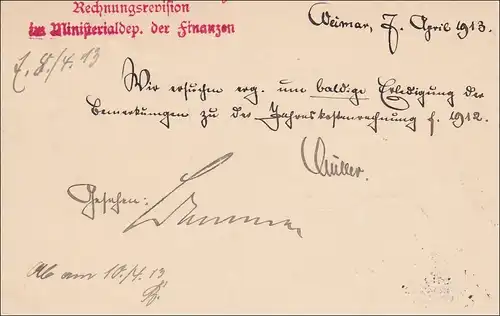 Rechnungsrevision
im Ministerialdep. der Finanzen
Weimar, 7. April 1913.
E. 8./4. 13
Wir ersuchen erg. um baldige Erledigung der
Bemerkungen zu der Jahreskostenrechnung f. 1912.
Müller.
Gesehen:
Ab am 10./4. 13